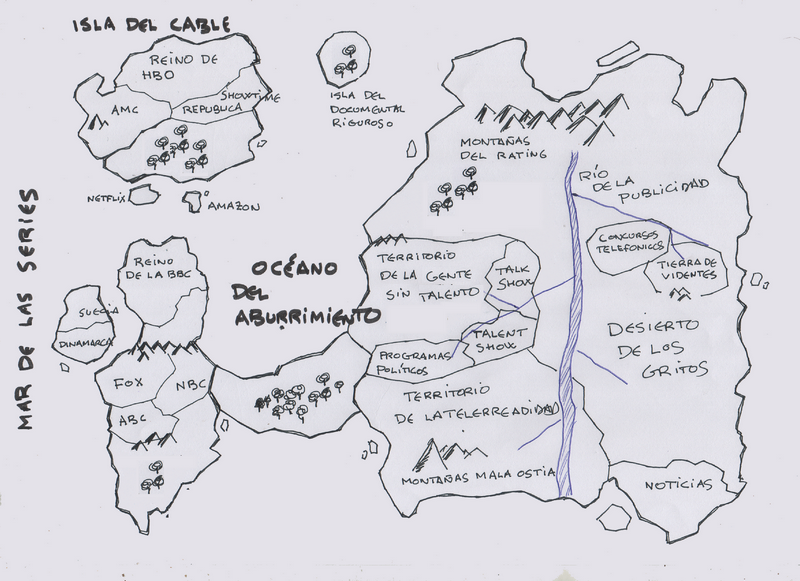 ISLA DEL CABLE
REINO DE
HBO
SHOWTIME
AMC
REPUBLICA
NETFLIX
AMAZON
ISLA DEL
DOCUMENTAL
RIGUROSO
MONTAÑAS
DEL RATING
RÍO
DE LA
PUBLICIDAD
CONCURSOS
TELEFONICOS
TIERRA DE
VIDENTES
MAR DE LAS SERIES
REINO
DE LA BBC
OCÉANO
DEL
ABURRIMIENTO
TERRITORIO
DE LA GENTE
SIN TALENTO
TALK
SHOW
TALENT
SHOW
PROGRAMAS
POLÍTICOS
SUECIA
DINAMARCA
FOX
NBC
ABC
DESIERTO
DE LOS
GRITOS
TERRITORIO
DE LA TELERREADIDAD
MONTAÑAS MALA OSTIA
NOTICIAS